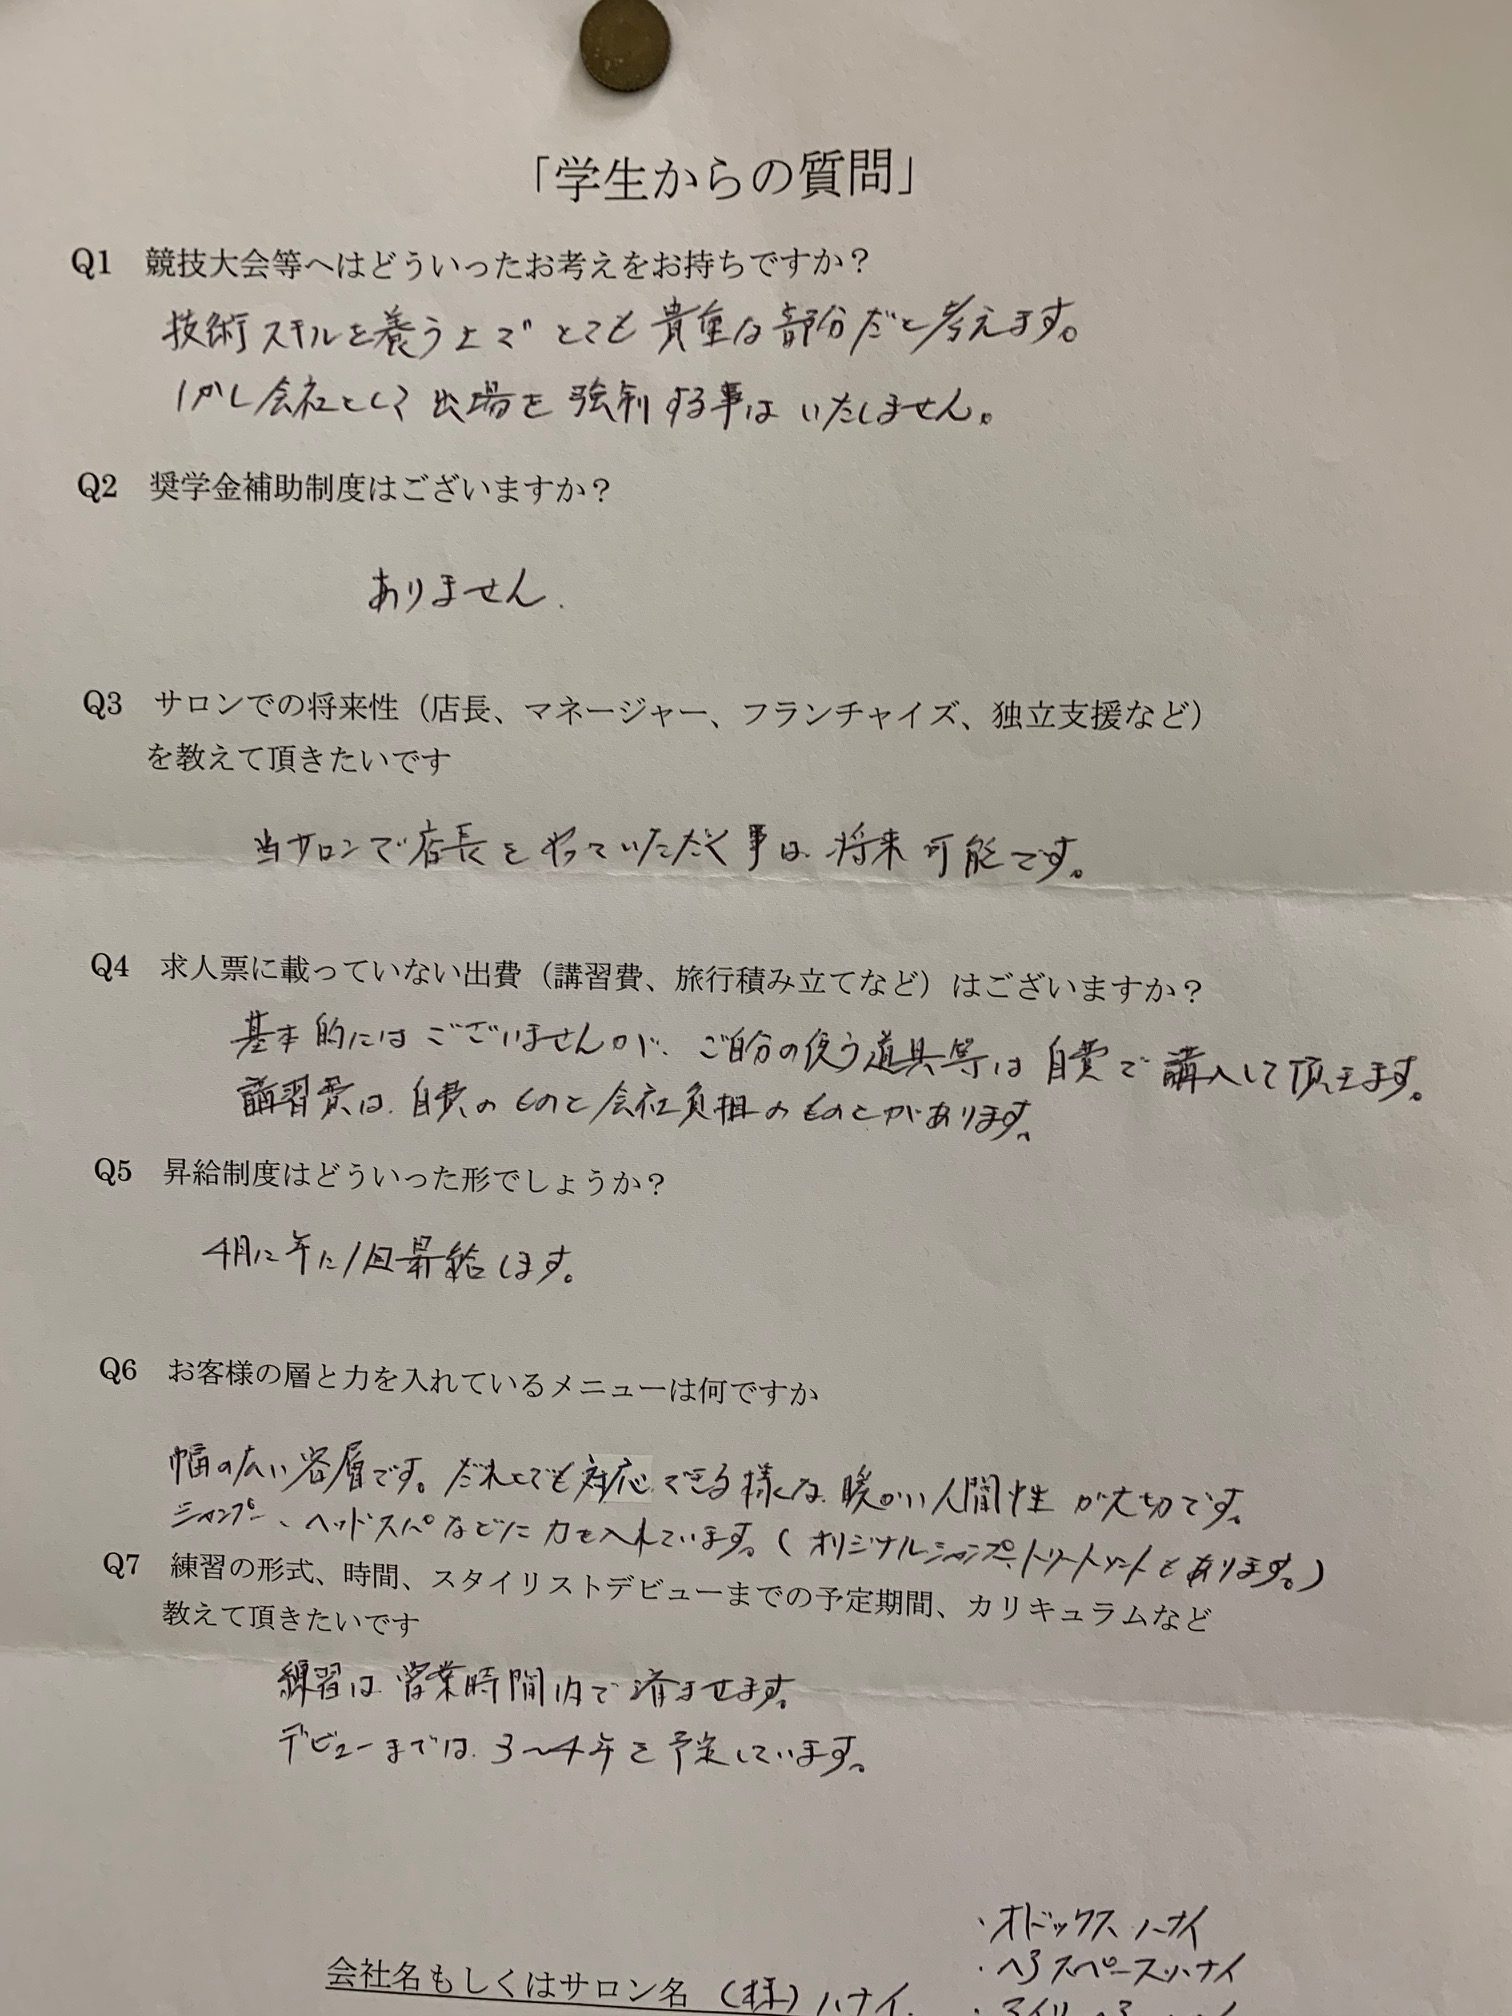 「学生からの質問」
Q1 競技大会等へはどういったお考えをお持ちですか？
技術スキルを養う上でとても貴重な部分だと考えます。
しかし会社として出場を強制する事はいたしません。
Q2 奨学金補助制度はございますか？
ありません.
Q3 サロンでの将来性（店長、マネージャー、フランチャイズ、独立支援など）
を教えて頂きたいです
当サロンで店長をやっていただく事は、将来可能です。
Q4 求人票に載っていない出費（講習費、旅行積み立てなど）はございますか？
基本的にはございませんが、ご自分の使う道具等は自費で購入して頂きます。
講習費は、自費のものと会社負担のものとがあります。
Q5 昇給制度はどういった形でしょうか？
4月に年に1回昇給します。
Q6 お客様の層と力を入れているメニューは何ですか
幅の広い客層です。だれとでも対応できる様な、暖かい人間性が大切です。
シャンプー、ヘッドスパなどに力を入れています。（オリジナルシャンプー、トリートメントもあります。）
Q7 練習の形式、時間、スタイリストデビューまでの予定期間、カリキュラムなど
教えて頂きたいです
練習は営業時間内で済ませます。
デビューまでは、3〜4年を予定しています。
・オドックスハナイ
・ヘアスペースハナイ
会社名もしくはサロン名 (株)ハナイ